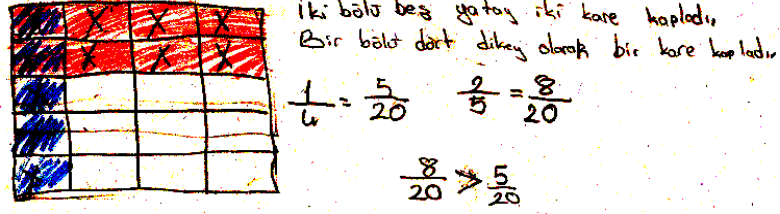 İki bölü beş yatay iki kare kapladı,
Bir bölü dört dikey olarak bir kare kapladı,
1/4 = 5/20 2/5 = 8/20
8/20 > 5/20